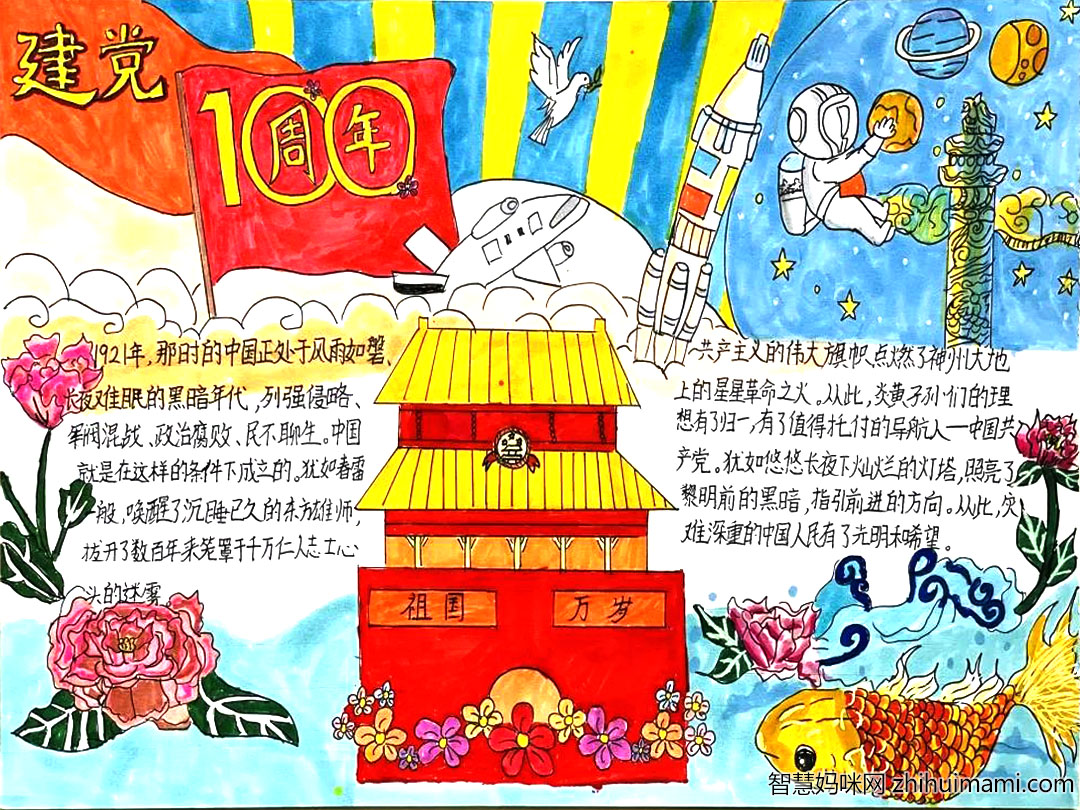 建党
100
周年
1921年,那时的中国正处于风雨如磐、
长夜难眠的黑暗年代,列强侵略、
军阀混战、政治腐败、民不聊生。中国
就是在这样的条件下成立的。犹如春雷
一般,唤醒了沉睡已久的东方雄师,
拔开了数百年来笼罩于千万仁人志士心
头的迷雾。
共产主义的伟大旗帜,点燃了神州大地
上的星星革命之火。从此,炎黄子孙们的理
想有了归一,有了值得托付的导航人一中国共
产党。犹如悠悠长夜下灿烂的灯塔,照亮了
黎明前的黑暗,指引前进的方向。从此,灾
难深重的中国人民有了光明和希望。
祖国
万岁
智慧妈咪网 zhihuimami.com